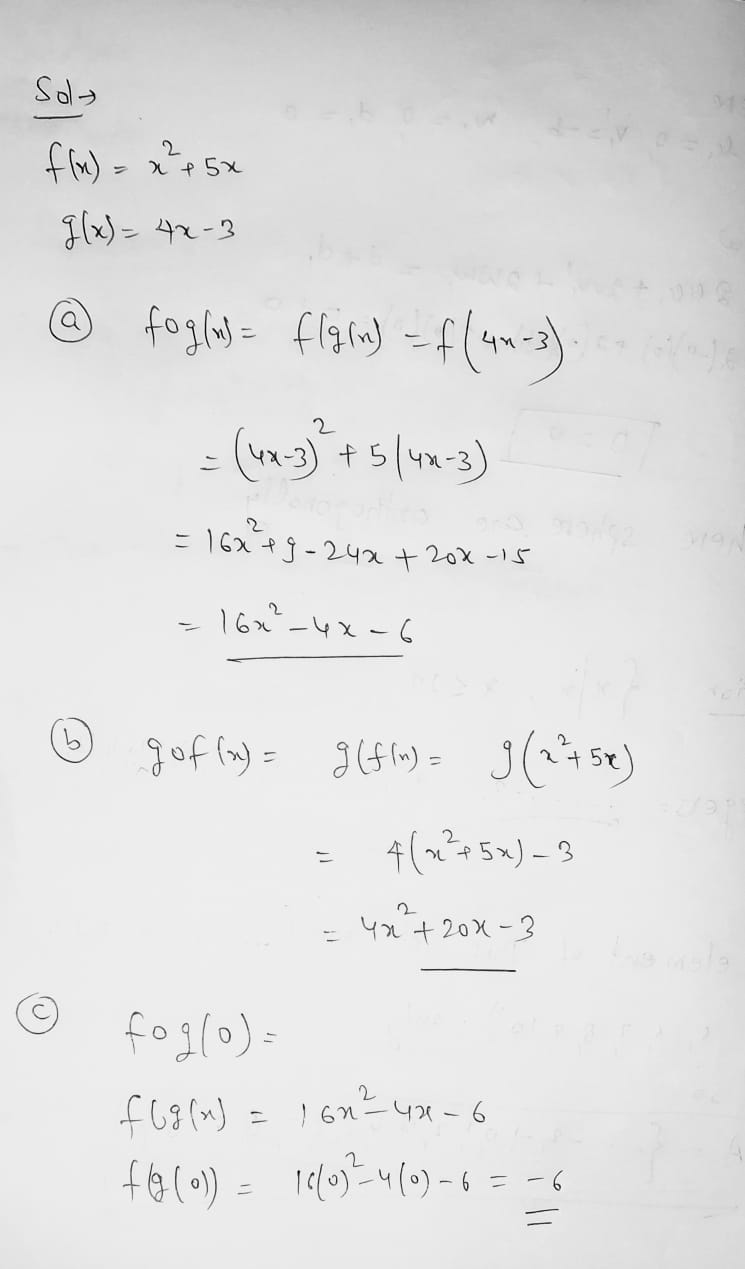 Sol →
f(x) = x² + 5x
g(x) = 4x - 3
(a) fog(x) = f(g(x) = f(4x-3)
= (4x-3)² + 5(4x-3)
= 16x² + 9 - 24x + 20x - 15
= 16x² - 4x - 6
(b) gof(x) = g(f(x) = g(x² + 5x)
= 4(x² + 5x) - 3
= 4x² + 20x - 3
(c) fog(0) =
f(g(x) = 16x² - 4x - 6
f(g(0)) = 16(0)² - 4(0) - 6 = -6